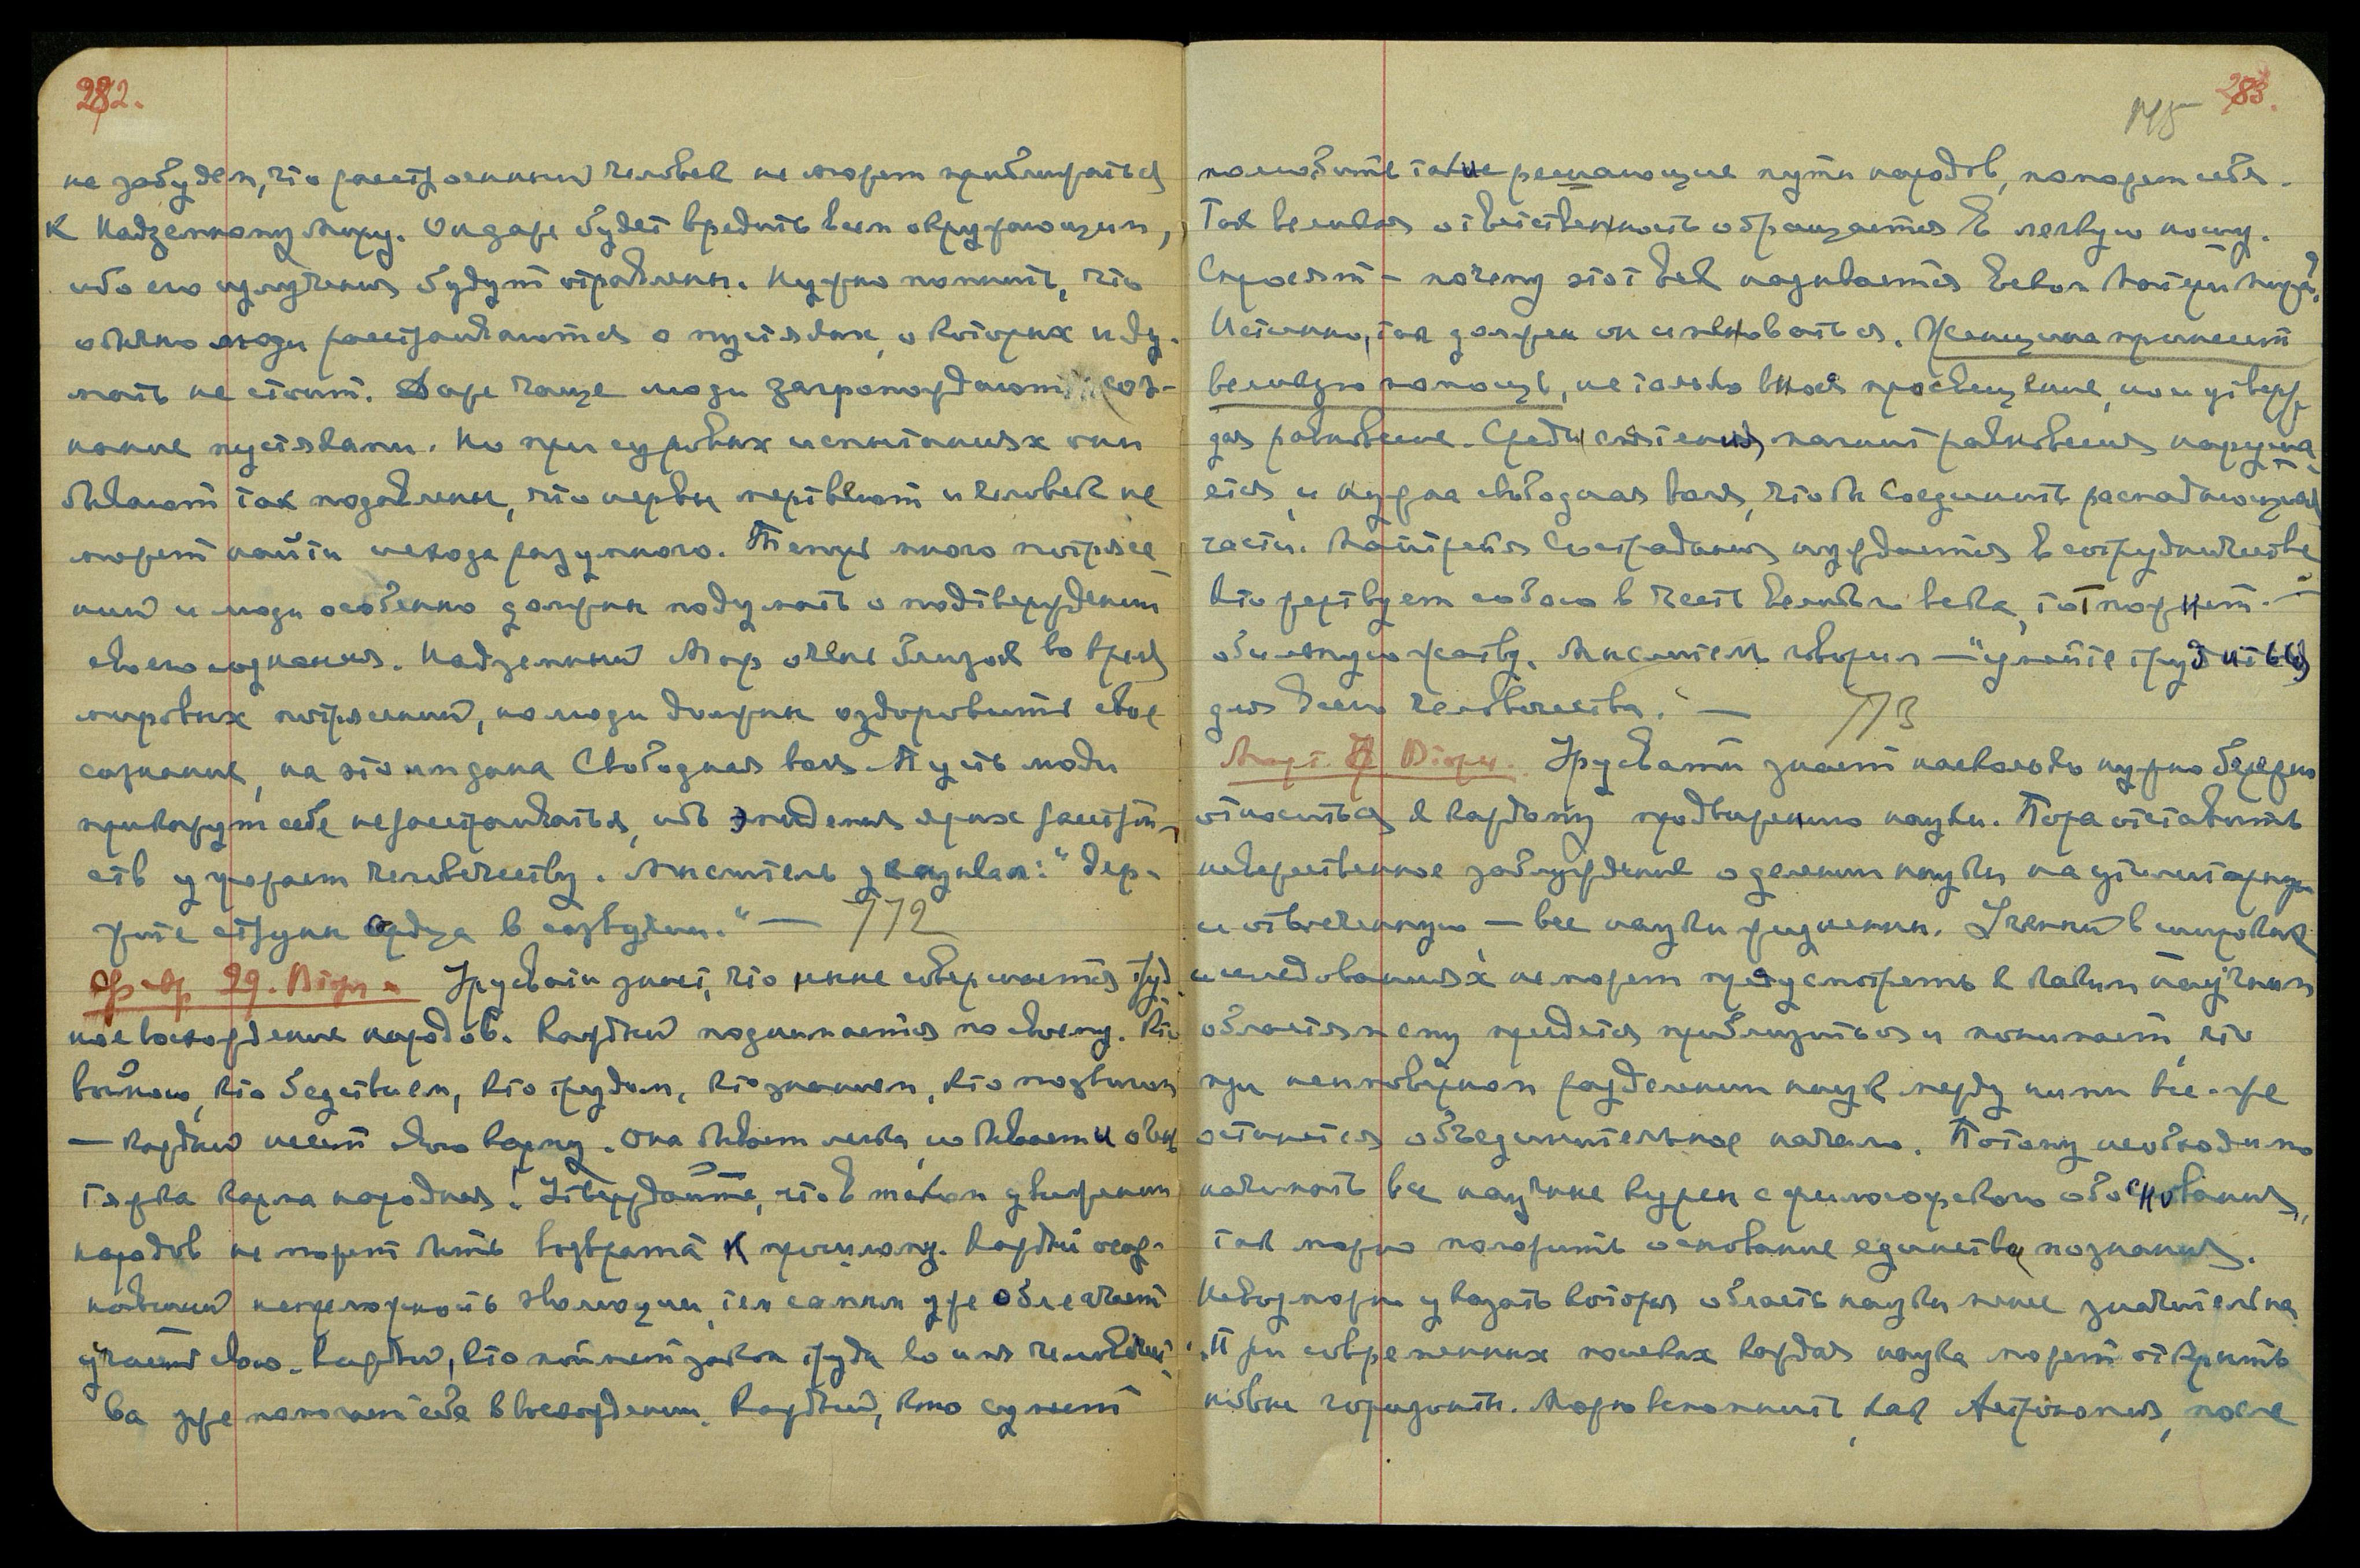 282.
не забудем, что расстроенный человек не может приближаться
к Надземному Миру. Он даже будет вредить всем окружающим,
ибо его излучения будут отравлены. Нужно помнить, что
обычно люди расстраиваются о пустяках, о которых и ду-
мать не стоит. Даже чаще люди загромождают соз-
нание пустяками. Но при суровых испытаниях они
бывают так подавлены, что нервы мертвеют и человек не
может найти исхода разумного. Теперь много потрясе-
ний и люди особенно должны подумать о подтверждении
своего сознания. Надземный Мир очень близок во время
мировых потрясений, но люди должны оздоровить свое
сознание, на это им дана Свободная воля. Пусть люди
прикажут себе не расстраиваться, ибо эпидемия ярых расстрой-
ств угрожает человечеству. Мыслитель указывал: "Дер-
жите струны сердца в созвучии." — 772
Февр. 29. Вторн. Урусвати знает, что ныне совершается труд-
ное восхождение народов. Каждый поднимается по своему. Кто
войною, кто бедствием, кто трудом, кто знанием, кто подвигом
— каждый несет свою карму. Она бывает легка, но бывает и очень
тяжка карма народная! Утверждайте, что в таком движении
народов не может быть возврата к прошлому. Каждый осоз-
навший непреложность эволюции, тем самым уже облегчает
участь свою. Каждый, кто поймет закон труда во имя человечест-
ва уже помогает себе в восхождении. Каждый, кто сумеет
283.
145
полюбить такие решающие пути народов, поможет себе.
Так великая ответственность обращается в легкую ношу.
Спросят — почему этот век называется веком Матери Мира?
Истинно, так должен он именоваться. Женщина принесет
великую помощь, не только внося просвещение, но и утверж-
дая равновесие. Среди смятения магнит равновесия наруша-
ется, и нужна свободная воля, чтобы соединить распадающиеся
части. Майтрейя Сострадания нуждается в сотрудничестве
Кто жертвует собою в честь великого века, тот пожнет —
обильную жатву. Мыслитель говорил — "умейте трудиться
для всего человечества." — 773
Март. 7 Вторн. Урусвати знает насколько нужно бережно
относиться к каждому продвижению науки. Пора оставить
невежественное заблуждение о делении науки на утилитарную
и отвлеченную — все науки жизненны. Ученый в широких
исследованиях не может предусмотреть к каким научным
областям ему придется приблизиться и понимает, что
при неимоверном разделении наук между ними все-же
останется объединительное начало. Потому необходимо
начинать все научные курсы с философского обоснования,
так можно положить основание единства познания.
Невозможно указать которая область науки менее значительна
При современных поисках каждая наука может открыть
новые горизонты. Можно вспомнить, как Астрономия, после